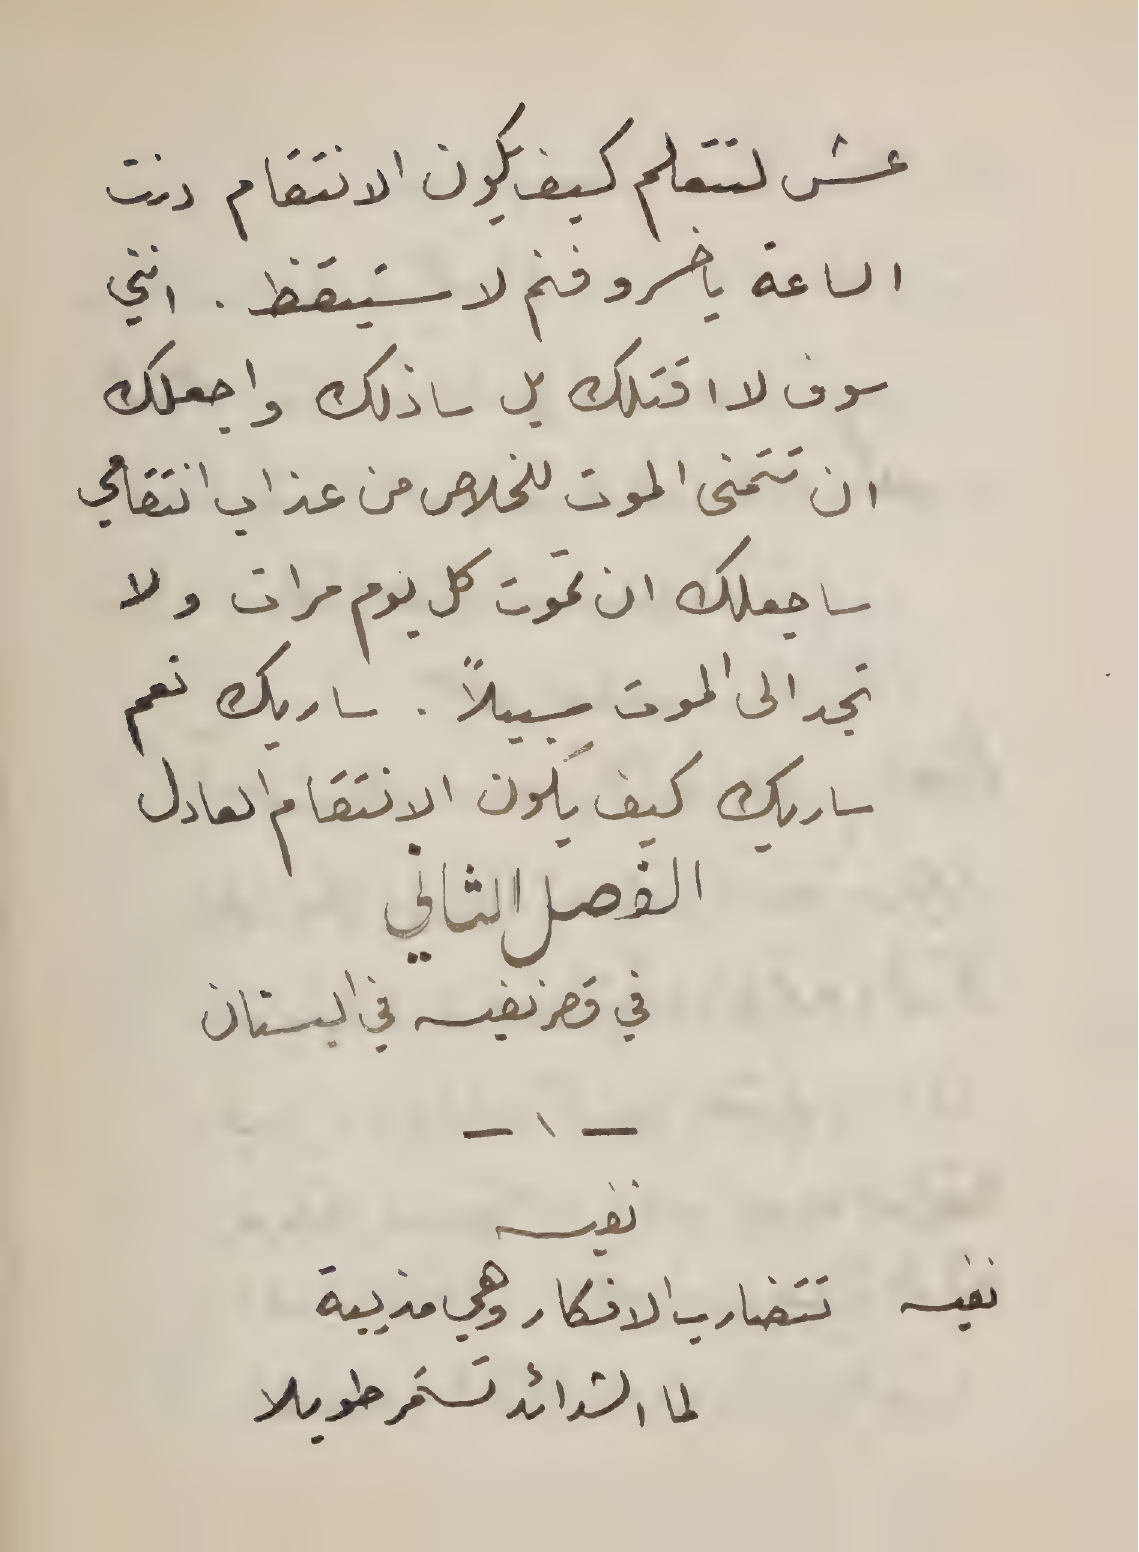 عش لتتعلم كيف يكون الانتقام دنت
الساعة ياخسرو فنم لا ستيقظ . انني
سوف لا اقتلك بل ساذلك واجعلك
ان تتمنى الموت للخلاص من عذاب انتقامي
ساجعلك ان تموت كل يوم مرات ولا
تجد الى الموت سبيلاً . ساريك نعم
ساريك كيف يكون الانتقام العادل
الفصل الثاني
في قصر نفيسه في البستان
— ١ —
نفيسه
نفيسه تتضارب الافكار وهي مذيبة
لما الشدائد تستمر طويلا